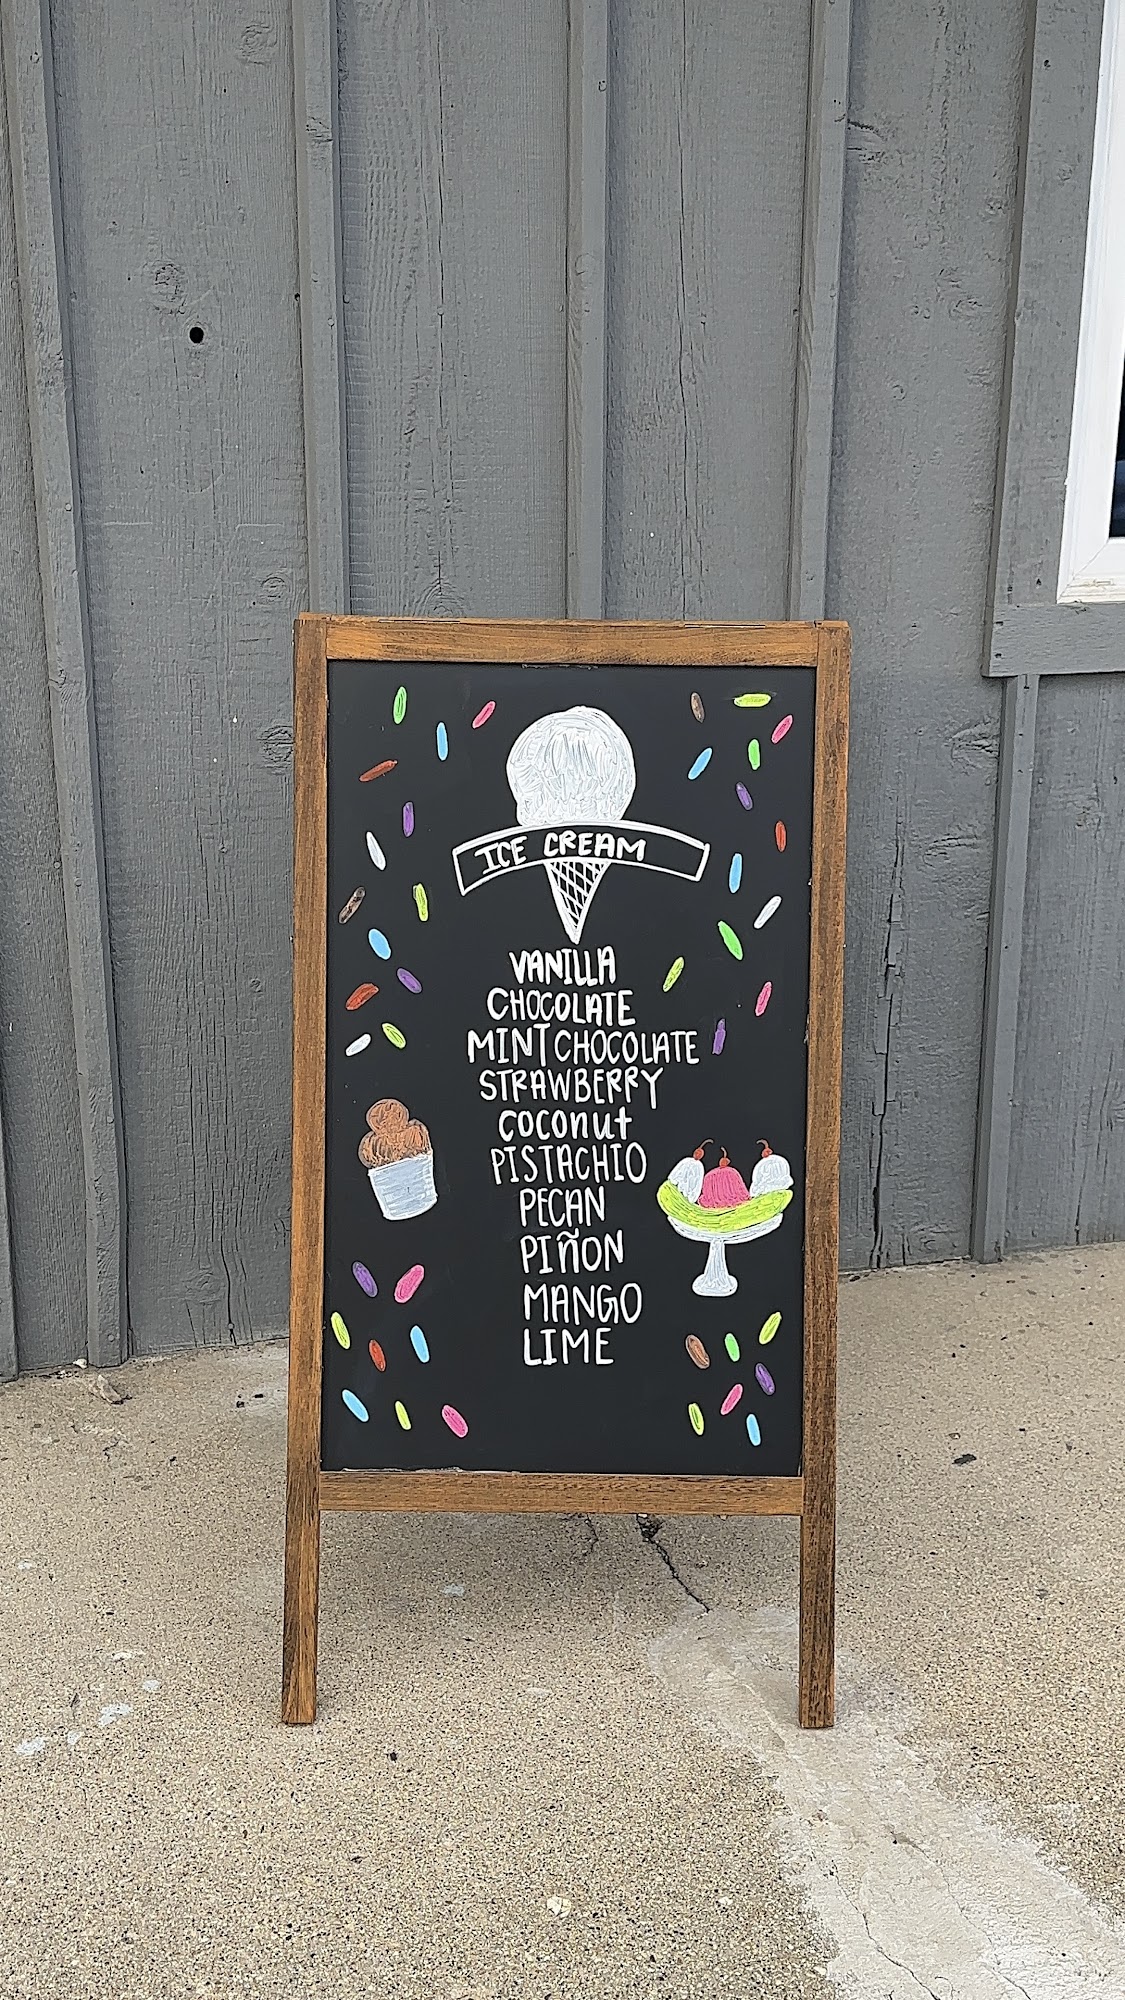 ICE CREAM
VANILLA
CHOCOLATE
MINT CHOCOLATE
STRAWBERRY
coconut
PISTACHIO
PECAN
PIñON
MANGO
LIME